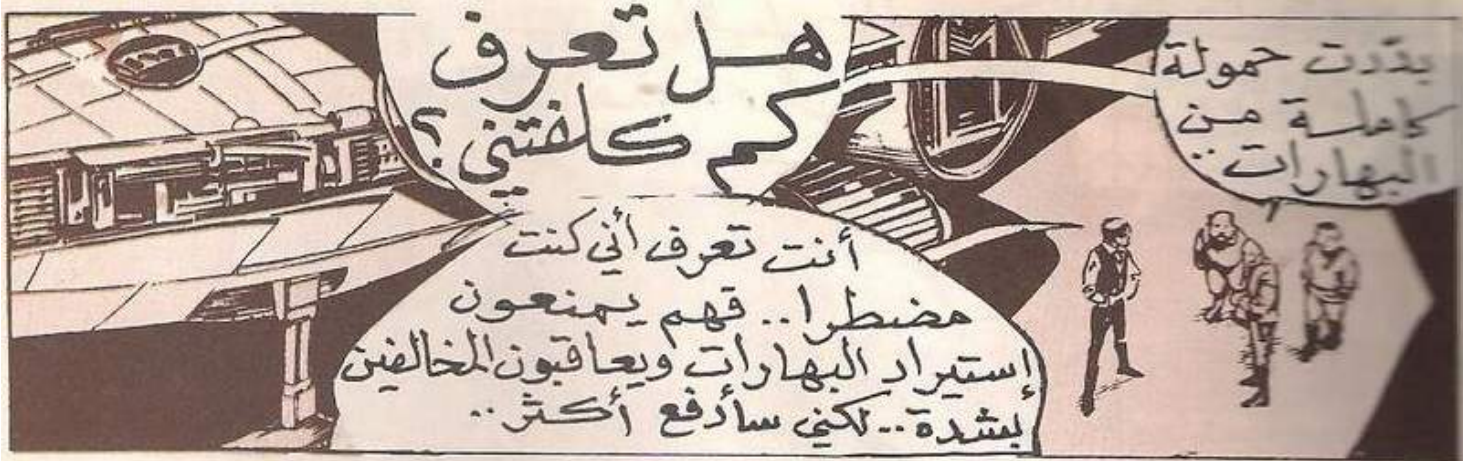 بددت حمولة
كاملة من
البهارات
هل تعرف
كم كلفتني؟
أنت تعرف أني كنت
مضطرا.. فهم يمنعون
إستيراد البهارات ويعاقبون المخالفين
بشدة.. لكني سأدفع أكثر..